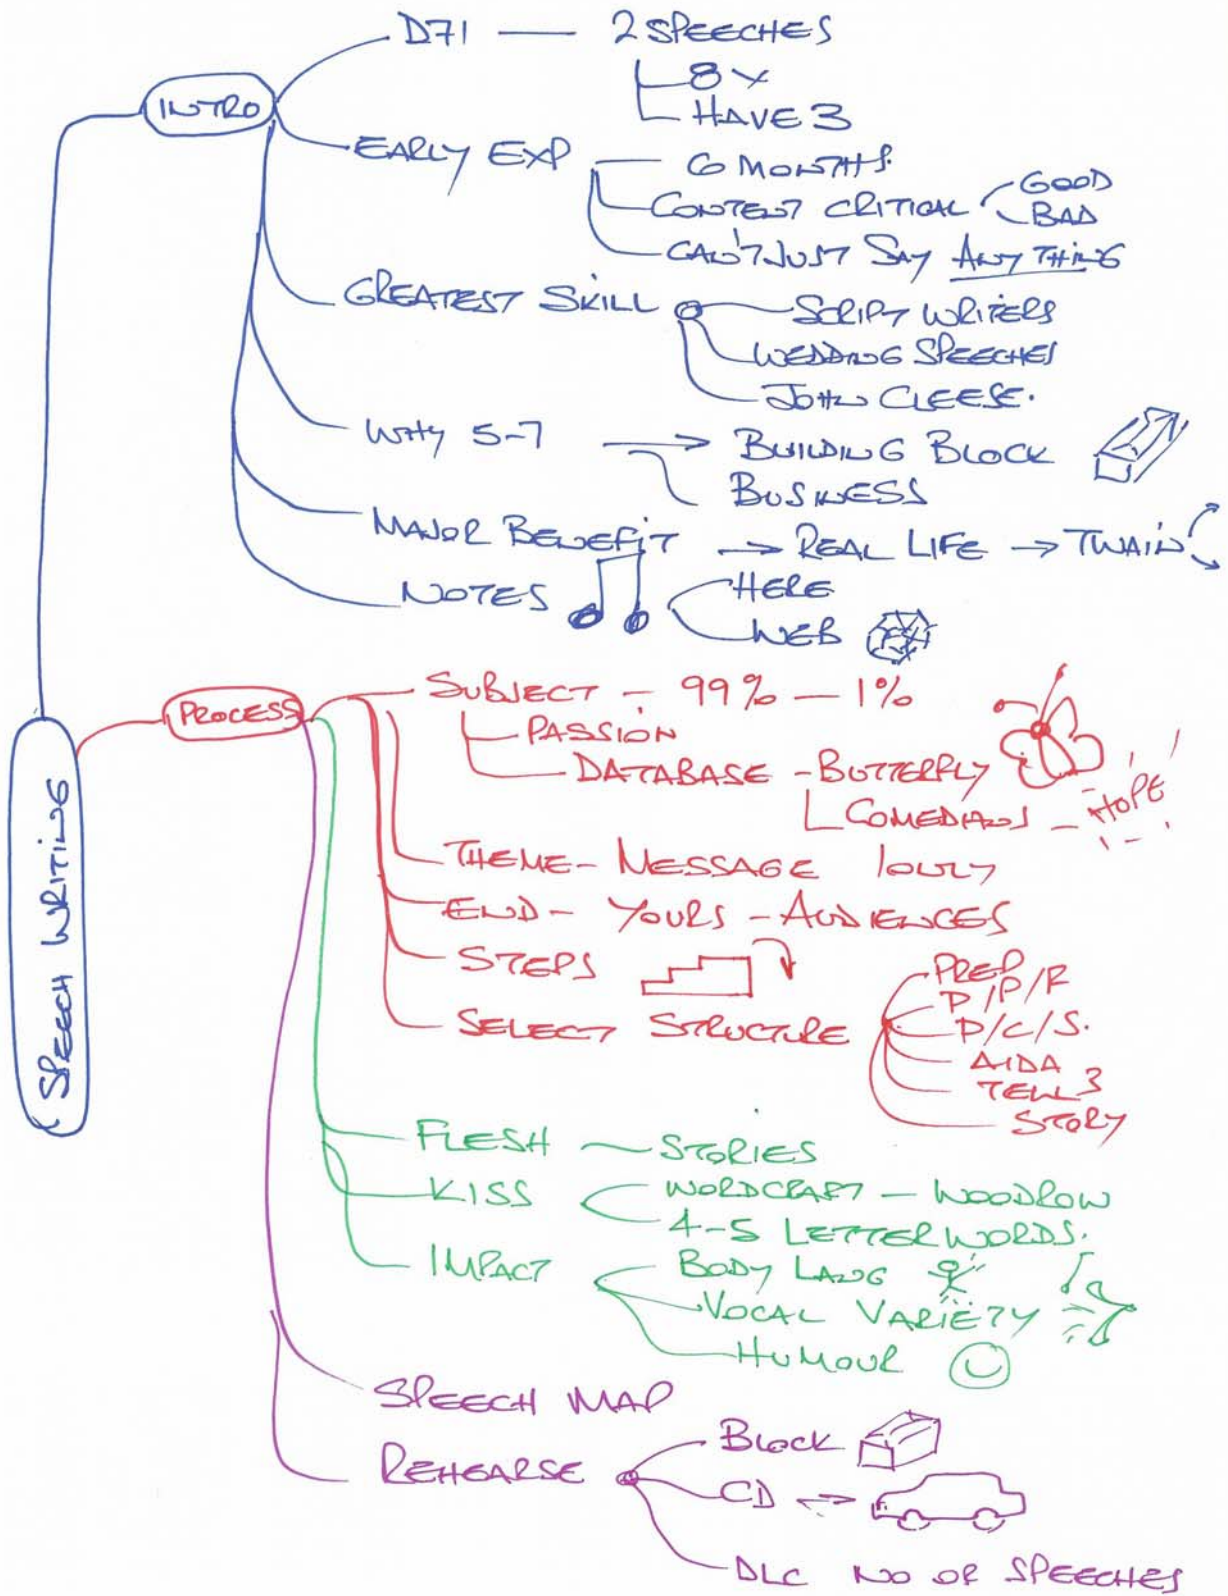 D71 — 2 SPEECHES
8 X
INTRO
HAVE 3
EARLY EXP
6 MONTHS.
GOOD
CONTENT CRITICAL
BAD
CAN'T JUST SAY ANY THING
GREATEST SKILL
SCRIPT WRITERS
WEDDING SPEECHES
JOHN CLEESE.
WHY 5-7 → BUILDING BLOCK
BUSINESS
MAJOR BENEFIT → REAL LIFE → TWAIN
NOTES
HERE
WEB
SPEECH WRITING
PROCESS
SUBJECT - 99% - 1%
PASSION
DATABASE - BUTTERFLY
COMEDIANS - HOPE
THEME - MESSAGE 1 ONLY
END - YOURS - AUDIENCES
STEPS
SELECT STRUCTURE
PREP
P/P/F
P/C/S.
AIDA
TELL 3
STORY
FLESH ~ STORIES
KISS
WORDCRAFT - WOODROW
4-5 LETTER WORDS.
IMPACT
BODY LANG
VOCAL VARIETY
HUMOUR
SPEECH MAP
REHEARSE
BLOCK
CD
DLC NO OF SPEECHES